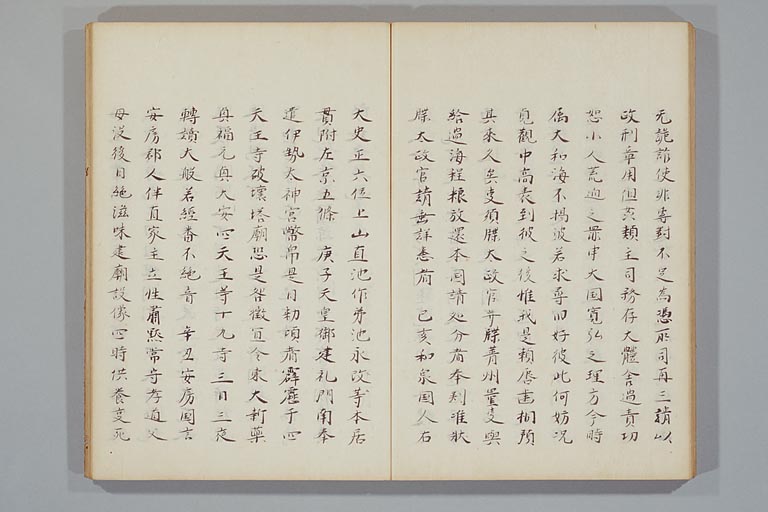 无詭詐使非專對不足為憑所司再三請以
政刑章用但姦類主司務存大體舎過責功
恕小人荒迫之罪申大国寛弘之理方今時
属大和海不揚波若求尋旧好彼此何妨況
貞觀中高表到彼之後惟我是頼脣齒相須
其来久矣事須牒太政官并牒菁州量事
給過海程粮放還本国請処分者奉判准状
牒太政官請垂詳悉者 己亥和泉国人右
大史正六位上山直池作弟池永改等本居
貫附左京五條 庚子天皇御建礼門南奉
遣伊勢太神宮幣帛是日勅頃者霹靂于四
天王寺破壊塔廟恐是咎徴宜令東大新藥
真福元興大安四天王等十九寺三日三夜
轉誦大般若經番不絶音 辛丑安房國言
安房郡人伴直家主立性肅黙常守孝道父
母没後口絶滋味建廟設像四時供養事死